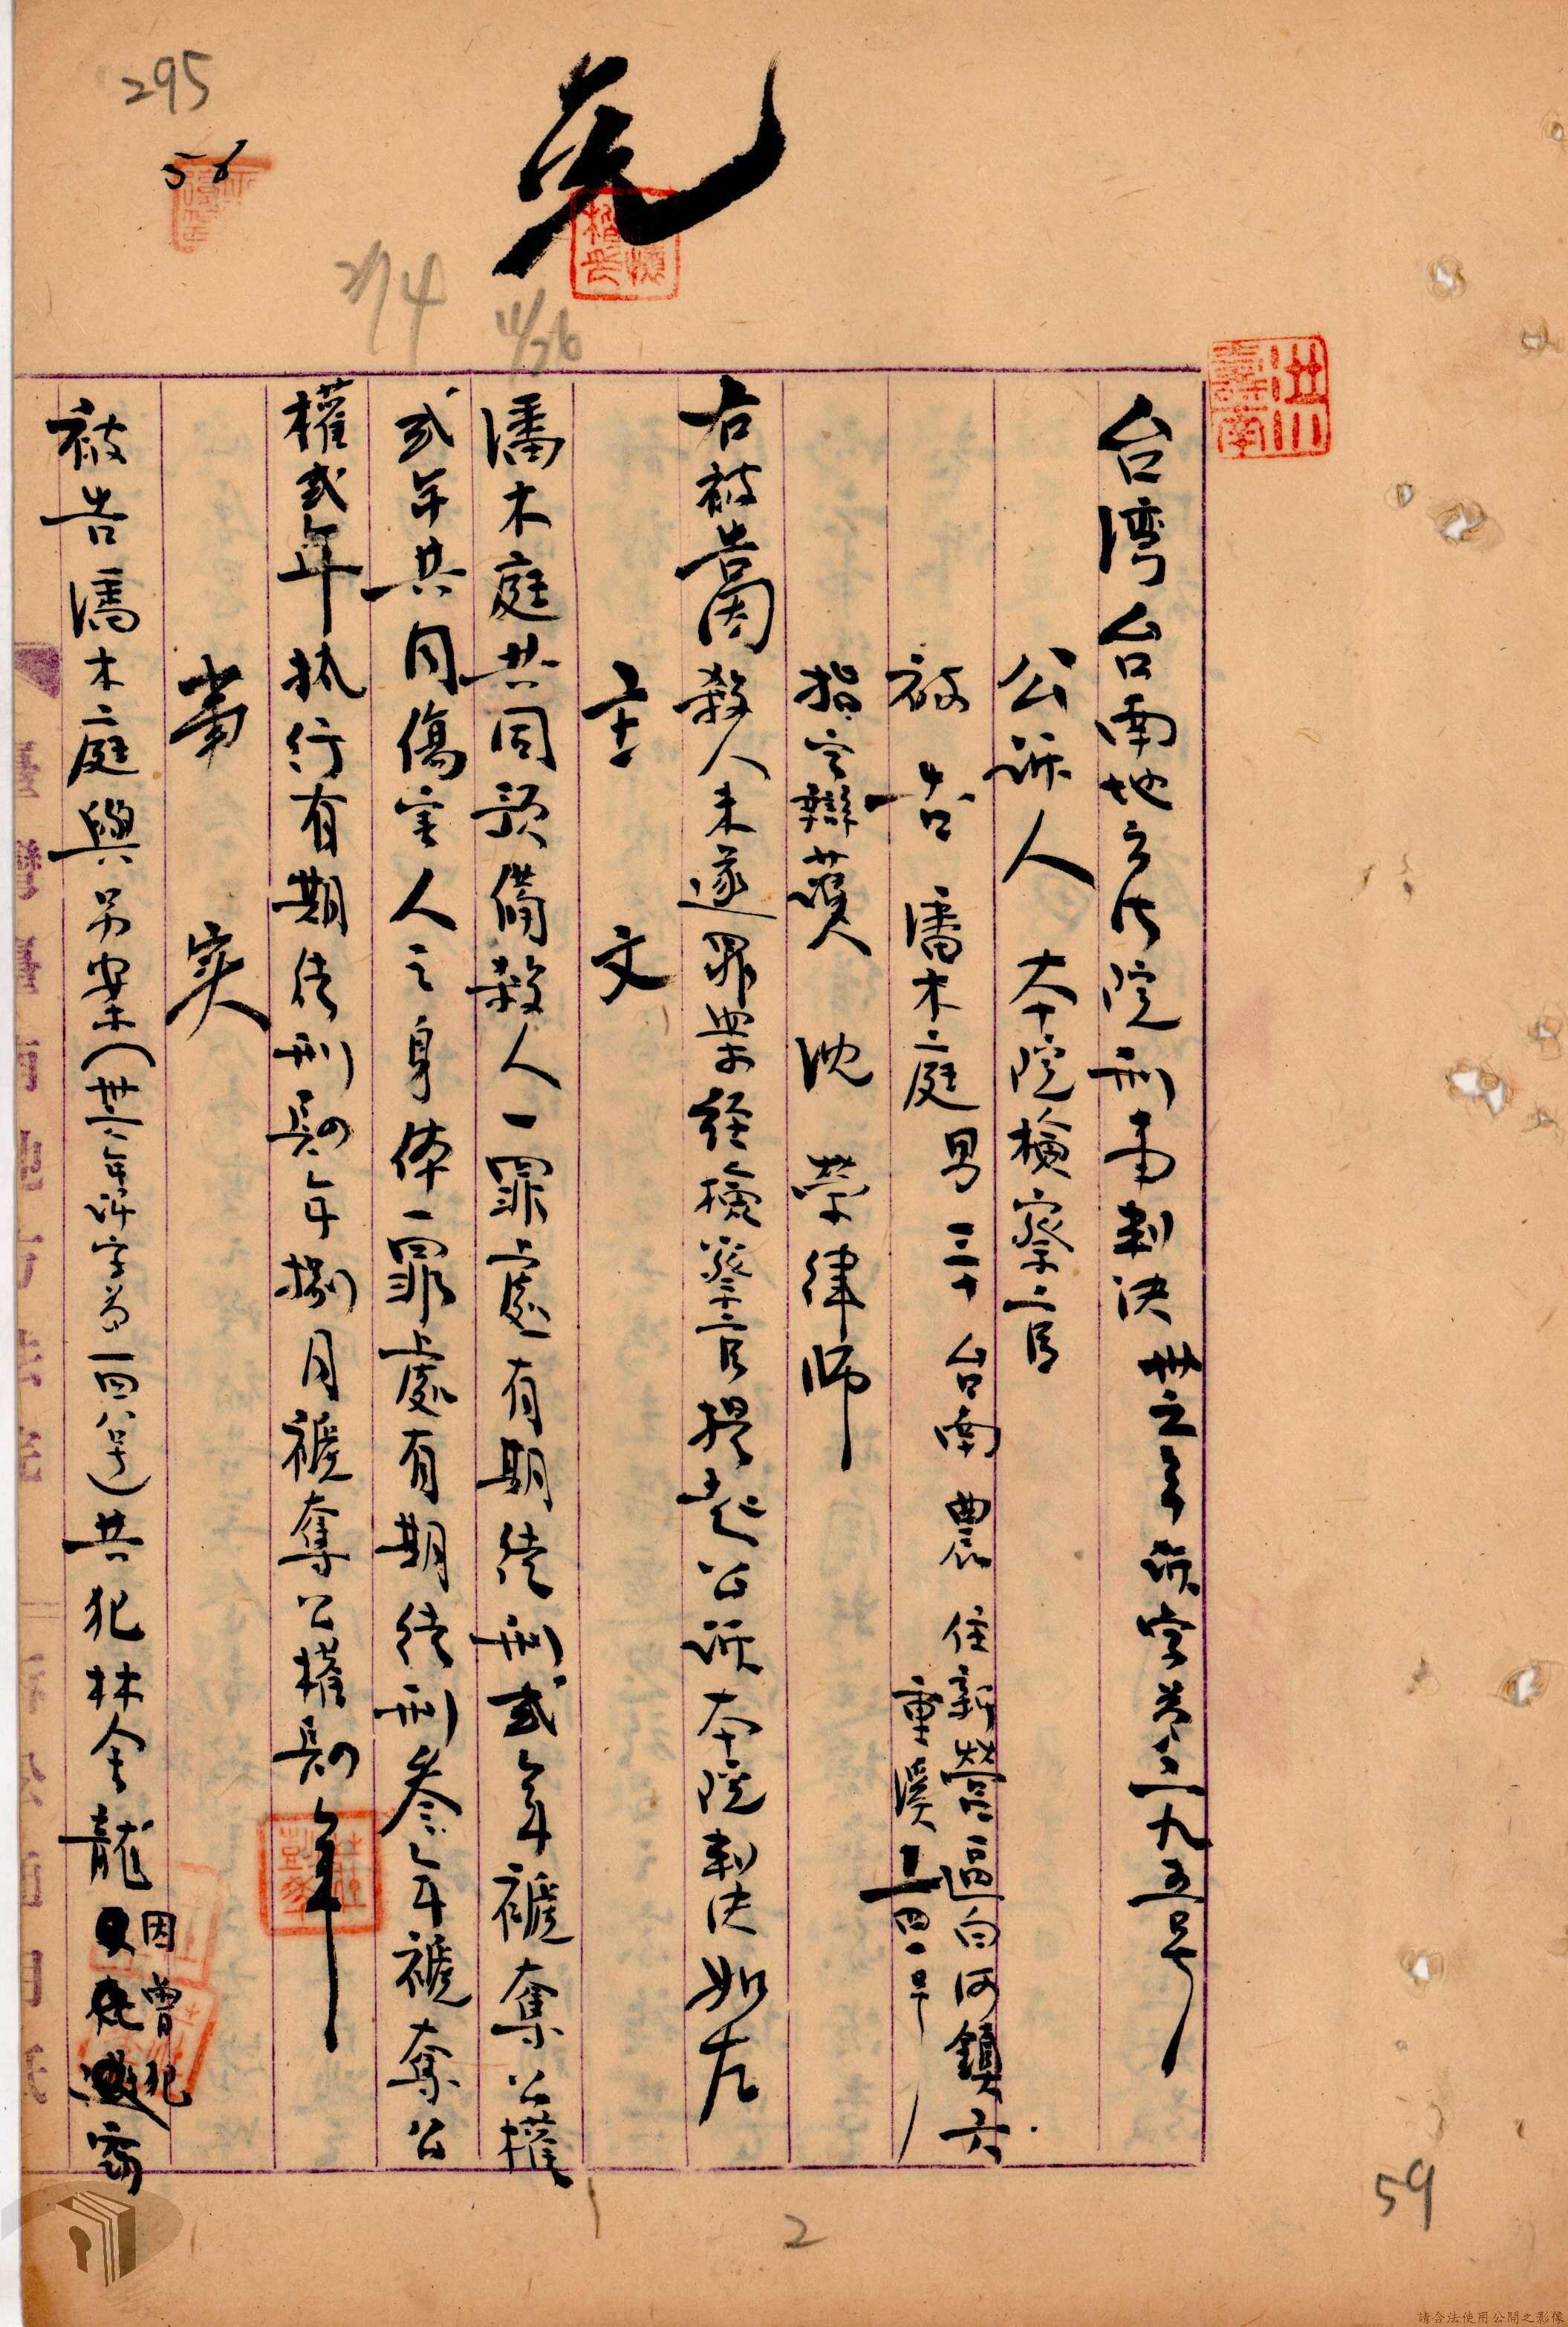 台湾台南地方法院刑事判決卅六年訴字第二九五号
公訴人 本院檢察官
被告 潘木庭 男 三十 台南 農 住新營區白河鎮六
重溪 四一号
指定辯護人 沈 榮律師
右被告因殺人未遂罪案経檢察官提起公訴本院判決如左
主文
潘木庭共同預備殺人一罪處有期徒刑貳年褫奪公權
貳年共同傷害人之身体一罪處有期徒刑叁年褫奪公
權貳年执行有期徒刑肆年捌月褫奪公權肆年
事实
被告潘木庭與另案(卅六年訴字第一四八号)共犯林金龍
因曾犯
竊
295
58
274
11/26
59
2
請合法使用公開之影像